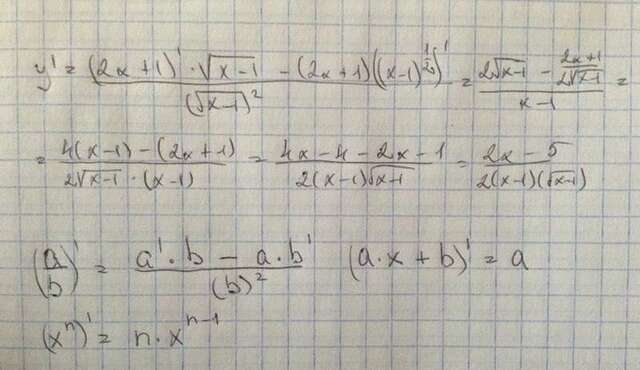 y' = ((2x+1)' · √(x-1) - (2x+1)((x-1)^(1/2))')/(√(x-1))^2 = (2√(x-1) - (2x+1)/(2√(x-1)))/(x-1) =
= (4(x-1) - (2x+1))/(2√(x-1) · (x-1)) = (4x-4-2x-1)/(2(x-1)√(x-1)) = (2x-5)/(2(x-1)(√(x-1)))
(a/b)' = (a' · b - a · b')/(b)^2 (a · x + b)' = a
(x^n)' = n · x^(n-1)